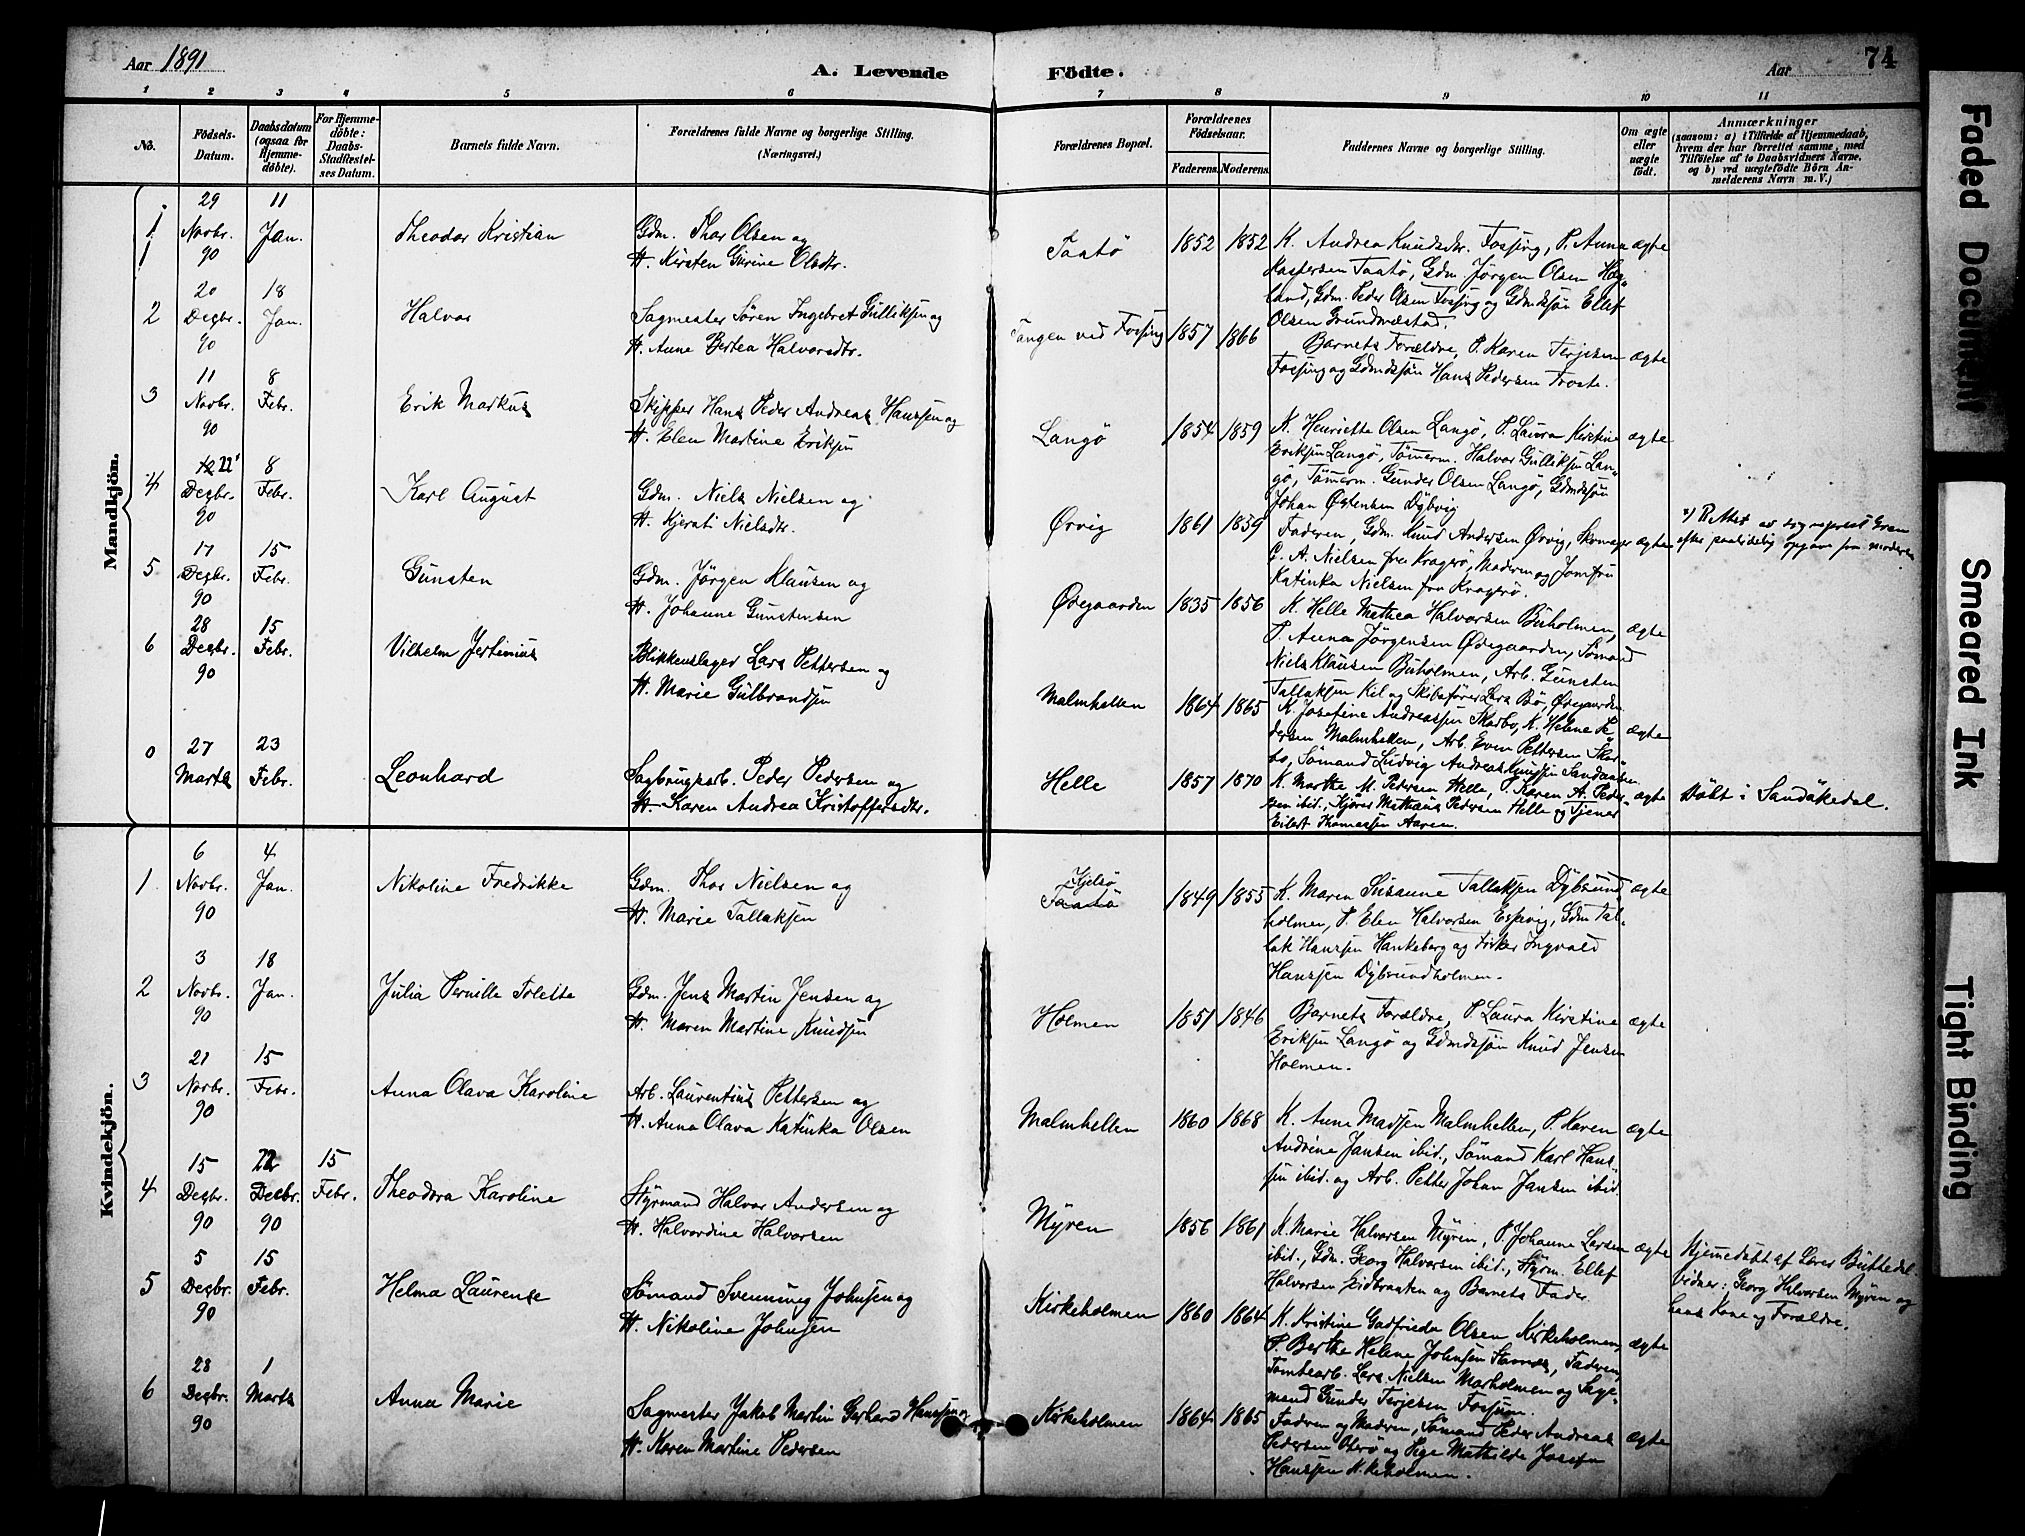 Aar 1891
A. Levende Födte.
Aar
74
1 2 3 4 5 6 7 8 9 10 11
No.
Födsels-Datum.
Daabsdatum (ogsaa for Hjemme-döbte).
For Hjemme-döbte: Daabs-Stadfæstel-ses Datum.
Barnets fulde Navn.
Forældrenes fulde Navne og borgerlige Stilling.
(Næringsvei.)
Forældrenes Bopæl.
Forældrenes Födselsaar.
Faderens. Moderens.
Faddernes Navne og borgerlige Stilling.
Om ægte eller uægte födt.
Anmærkninger
(saasom: a) i Tilfælde af Hjemmedaab,
hvem der har forrettet samme, med
Tilföielse af to Daabsvidners Navne,
og b) ved uægtefödte Börn An-
melderens Navn m. V.)
Mandkjön.
1 29 Novbr. 90 11 Jan. Theodor Kristian
Gdm. Thor Olsen og
H. Kirsten Gurine Olsdtr.
Taatö 1852 1852
K. Andrea Knudsdtr. Fossing, P. Anna ægte
Kaspersen Taatö, Gdm. Jörgen Olsen Hag-
land, Gdm. Peder Olsen Fossing og Gdmdsjön Ellef
Olsen Grundmæstad.
2 20 Decbr. 90 18 Jan. Halvor
Sagmester Sören Ingebret Gulliksen og
H. Anne Bertea Halvorsdtr.
Tangen ved Fossing 1857 1866
Barnets Forældre, P. Karen Terjesen ægte
Fossing og Gdmdsjön Hans Pedersen Froste.
3 11 Novbr. 90 8 Febr. Erik Markus
Skipper Hans Peder Andreas Hansen og
H. Elen Martine Eriksen
Langö 1854 1859
K. Henriette Olsen Langö, P. Laura Kirstine ægte
Eriksen Langö, Tömerm. Halvor Gulliksen Lan-
gö, Tömerm. Gunder Olsen Langö, Gdmdsjön
Johan Østensen Dybvig
4 12 22 Decbr. 90 8 Febr. Karl August
Gdm. Niels Nielsen og
H. Kjersti Nielsdtr.
Ørvig 1861 1859
Faderen, Gdm. Knud Andersen Ørvig, Skomager ægte
G. A. Nielsen fra Kragerö, Moderen og Jomfru
Katinka Nielsen fra Kragerö.
5 17 Decbr. 90 15 Febr. Gunsten
Gdm. Jörgen Klausen og
H. Johanne Gunstensen
Øregaarden 1835 1856
K. Helle Mathea Halvorsen Buholmen, ægte
P. Anna Jörgensen Øregaarden, Sömand
Niels Klausen Buholmen, Arb. Gunsten
Tallaksen Kil og Skibsförer Lars Bö, Øregaarden.
6 28 Decbr. 90 15 Febr. Vilhelm Jertinius
Blikkenslager Lars Pettersen og
H. Marie Gulbrandsen
Malmhellen 1864 1865
K. Josefine Andreassen Skarbo, K. Helene Pe- ægte
dersen Malmhellen, Arb. Even Pettersen Skar-
bo, Sömand Ludvig Andreas Knudsen Sandaasen.
0 27 Marts 23 Febr. Leonhard
Sagbrugsarb. Peder Pedersen og
H. Karen Andrea Kristoffersdtr.
Helle 1857 1870
K. Marthe M. Pedersen Helle, P. Karen A. Peder- ægte
sen ibid., Kjörer Mathæus Pedersen Helle og Tjener
Eilert Thomassen Aaren.
Döbt i Sandökedal.
Kvindekjön.
1 6 Novbr. 90 4 Jan. Nikoline Fredrikke
Gdm. Thor Nielsen og
H. Marie Tallaksen
Kjelsö
Taatö 1849 1855
K. Maren Susanne Tallaksen Dybsund- ægte
holmen, P. Elen Halvorsen Espevig, Gdm Tal-
lak Hanssen Hankeberg og Fisker Ingvald
Hanssen Dybsundholmen.
2 3 Novbr. 90 18 Jan. Julia Pernille Tolette
Gdm. Jens Martin Jensen og
H. Maren Martine Knudsen
Holmen 1851 1846
Barnets Forældre, P. Laura Kirstine ægte
Eriksen Langö og Gdmdsjön Knud Jensen
Holmen.
3 21 Novbr. 90 15 Febr. Anna Olava Karoline
Arb. Laurentius Pettersen og
H. Anna Olava Katinka Olsen
Malmhellen 1860 1868
K. Anne Madsen Malmhellen, P. Karen ægte
Andrine Jansen ibid., Sömand Karl Hans-
sen ibid. og Arb. Petter Johan Jansen ibid.
4 15 Decbr. 90 22 Decbr. 90 15 Febr. Theodora Karoline
Styrmand Halvor Andersen og
H. Halvordine Halvorsen
Myren 1856 1861
K. Marie Halvorsen Myren, P. Johanne Larsen ægte
ibid., Gdm. Georg Halvorsen ibid., Styrm. Ellef
Halvorsen og Barnets Fader
Hjemedöbt af Lærer Buttedal
Vidner: Georg Halvorsen Myren og
hans Kone og Forældre.
5 5 Decbr. 90 15 Febr. Helma Laurense
Sömand Svenning Johnsen og
H. Nikoline Johnsen
Kirkeholmen 1860 1864
K. Kristine Gadfrieda Olsen Kirkeholmen, ægte
P. Berthe Helene Johnsen Stannes, Faderen,
Tomtearb. Lars Nielsen Marholmen og Sage-
mand Gunder Terjesen Fossum.
6 28 Decbr. 90 1 Marts Anna Marie
Sagmester Jakob Martin Gerhard Hanssen og
H. Karen Martine Pedersen
Kirkeholmen 1864 1865
Fadren og Madren, Sömand Peder Andreas ægte
Pedersen Oterö og Pige Mathilde Josefa
Hanssen Kirkeholmen.
Faded Document
Smeared Ink
Tight Binding